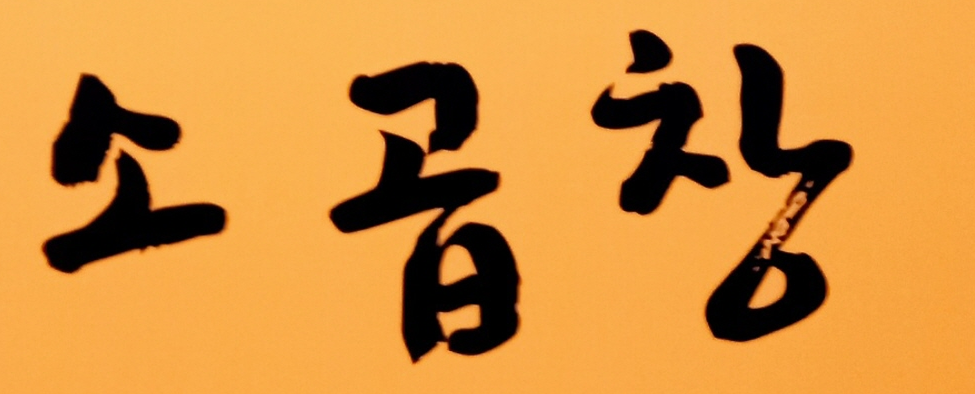 소곱창